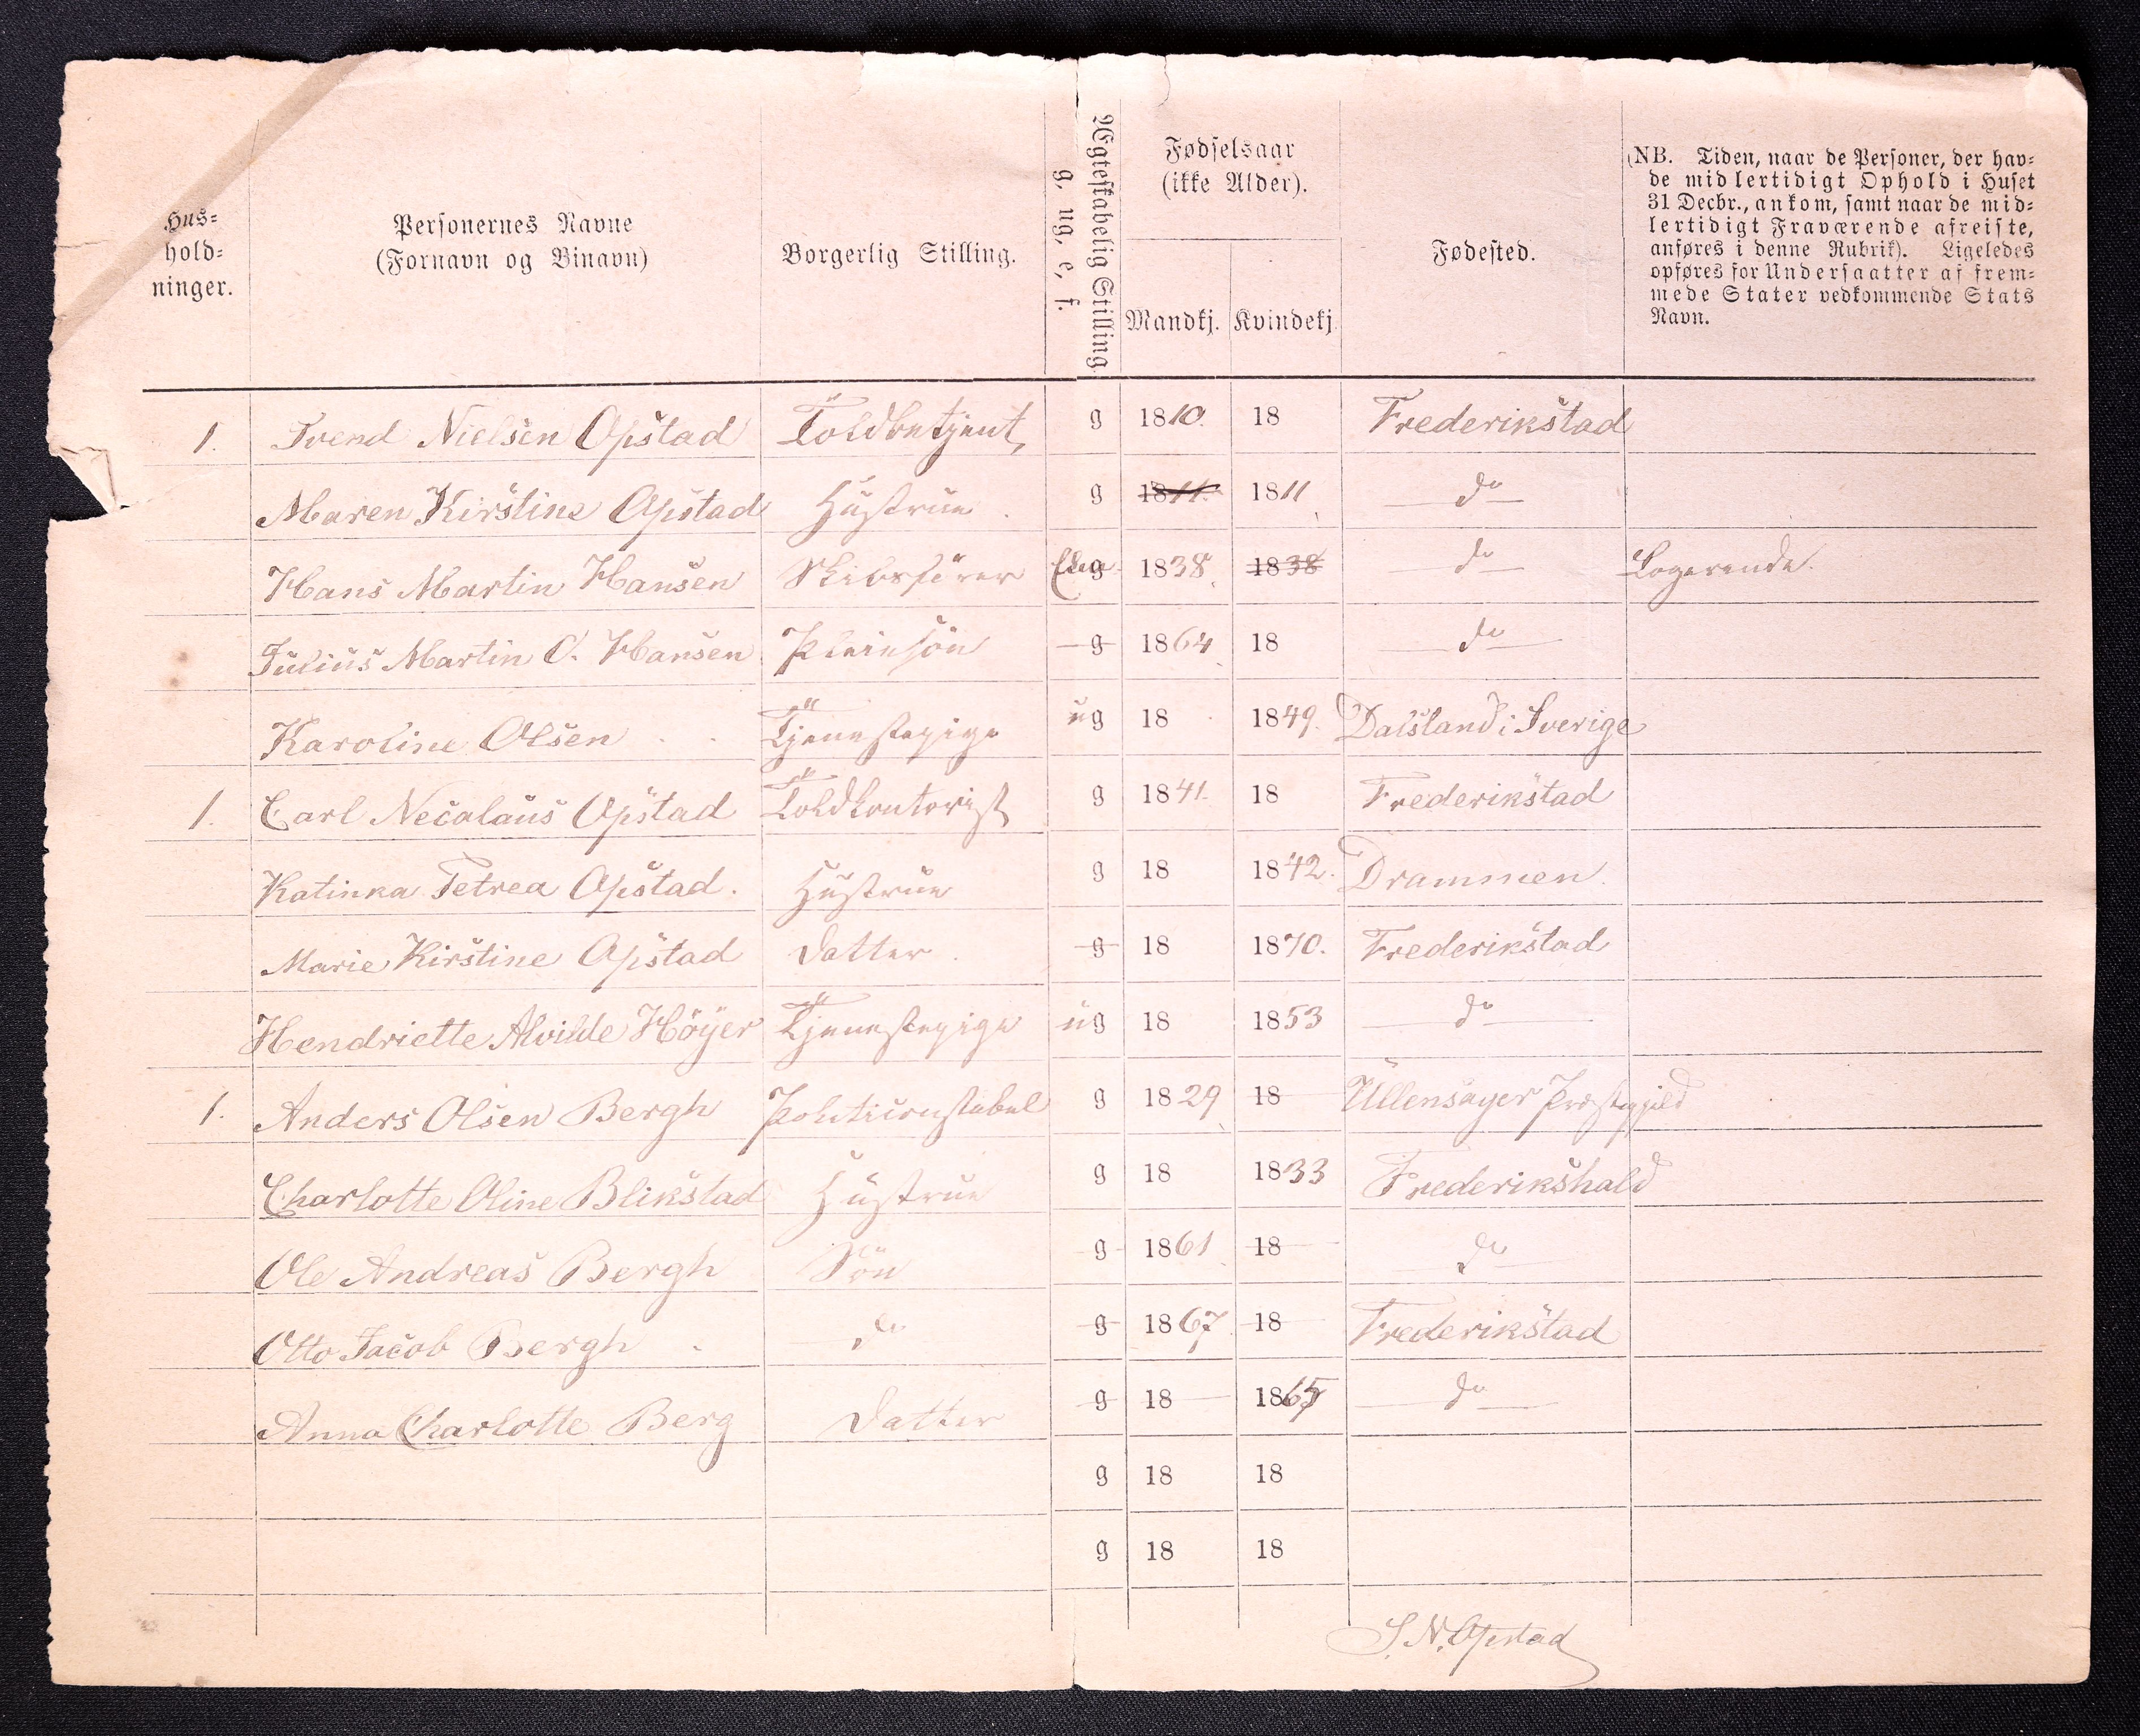 Hus-
hold-
ninger.
Personernes Navne
(Fornavn og Binavn)
Borgerlig Stilling.
Ægteskabelig Stilling
g, ug, e, f.
Fødselsaar
(ikke Alder).
Mandkj. Kvindekj.
Fødested.
(NB. Tiden, naar de Personer, der hav-
de midlertidigt Ophold i Huset
31 Decbr., ankom, samt naar de mid-
lertidigt Fraværende afreiste,
anføres i denne Rubrik). Ligeledes
opføres for Undersaatter af frem-
mede Stater vedkommende Stats
Navn.
1. Svend Nielsen Opstad Toldbetjent, g 1810. 18 Frederikstad
Maren Kirstine Opstad Hustrue. g 1811. 1811 do
Hans Martin Hansen Skibsförer g 1838 1838 do Logerende.
Julius Martin O. Hansen Pleiesön g 1864 18 do
Karoline Olsen Tjenestepige ug 18 1849. Dalsland i Sverige
1. Carl Necalaus Opstad Toldkontorist g 1841. 18 Frederikstad
Katinka Petrea Opstad. Hustrue g 18 1842. Drammen.
Marie Kirstine Opstad Datter. g 18 1870. Frederikstad
Hendriette Alvilde Höyer Tjenestepige ug 18 1853 do
1. Anders Olsen Bergh Politiconstabel g 1829 18 Ullensager Præstegjeld
Charlotte Oline Blikstad Hustrue g 18 1833 Frederikshald
Ole Andreas Bergh Sön g 1861 18 do
Otto Jacob Bergh do g 1867 18 Frederikstad
Anna Charlotte Berg Datter g 18 1865 do
g 18 18
g 18 18
S. N. Opstad